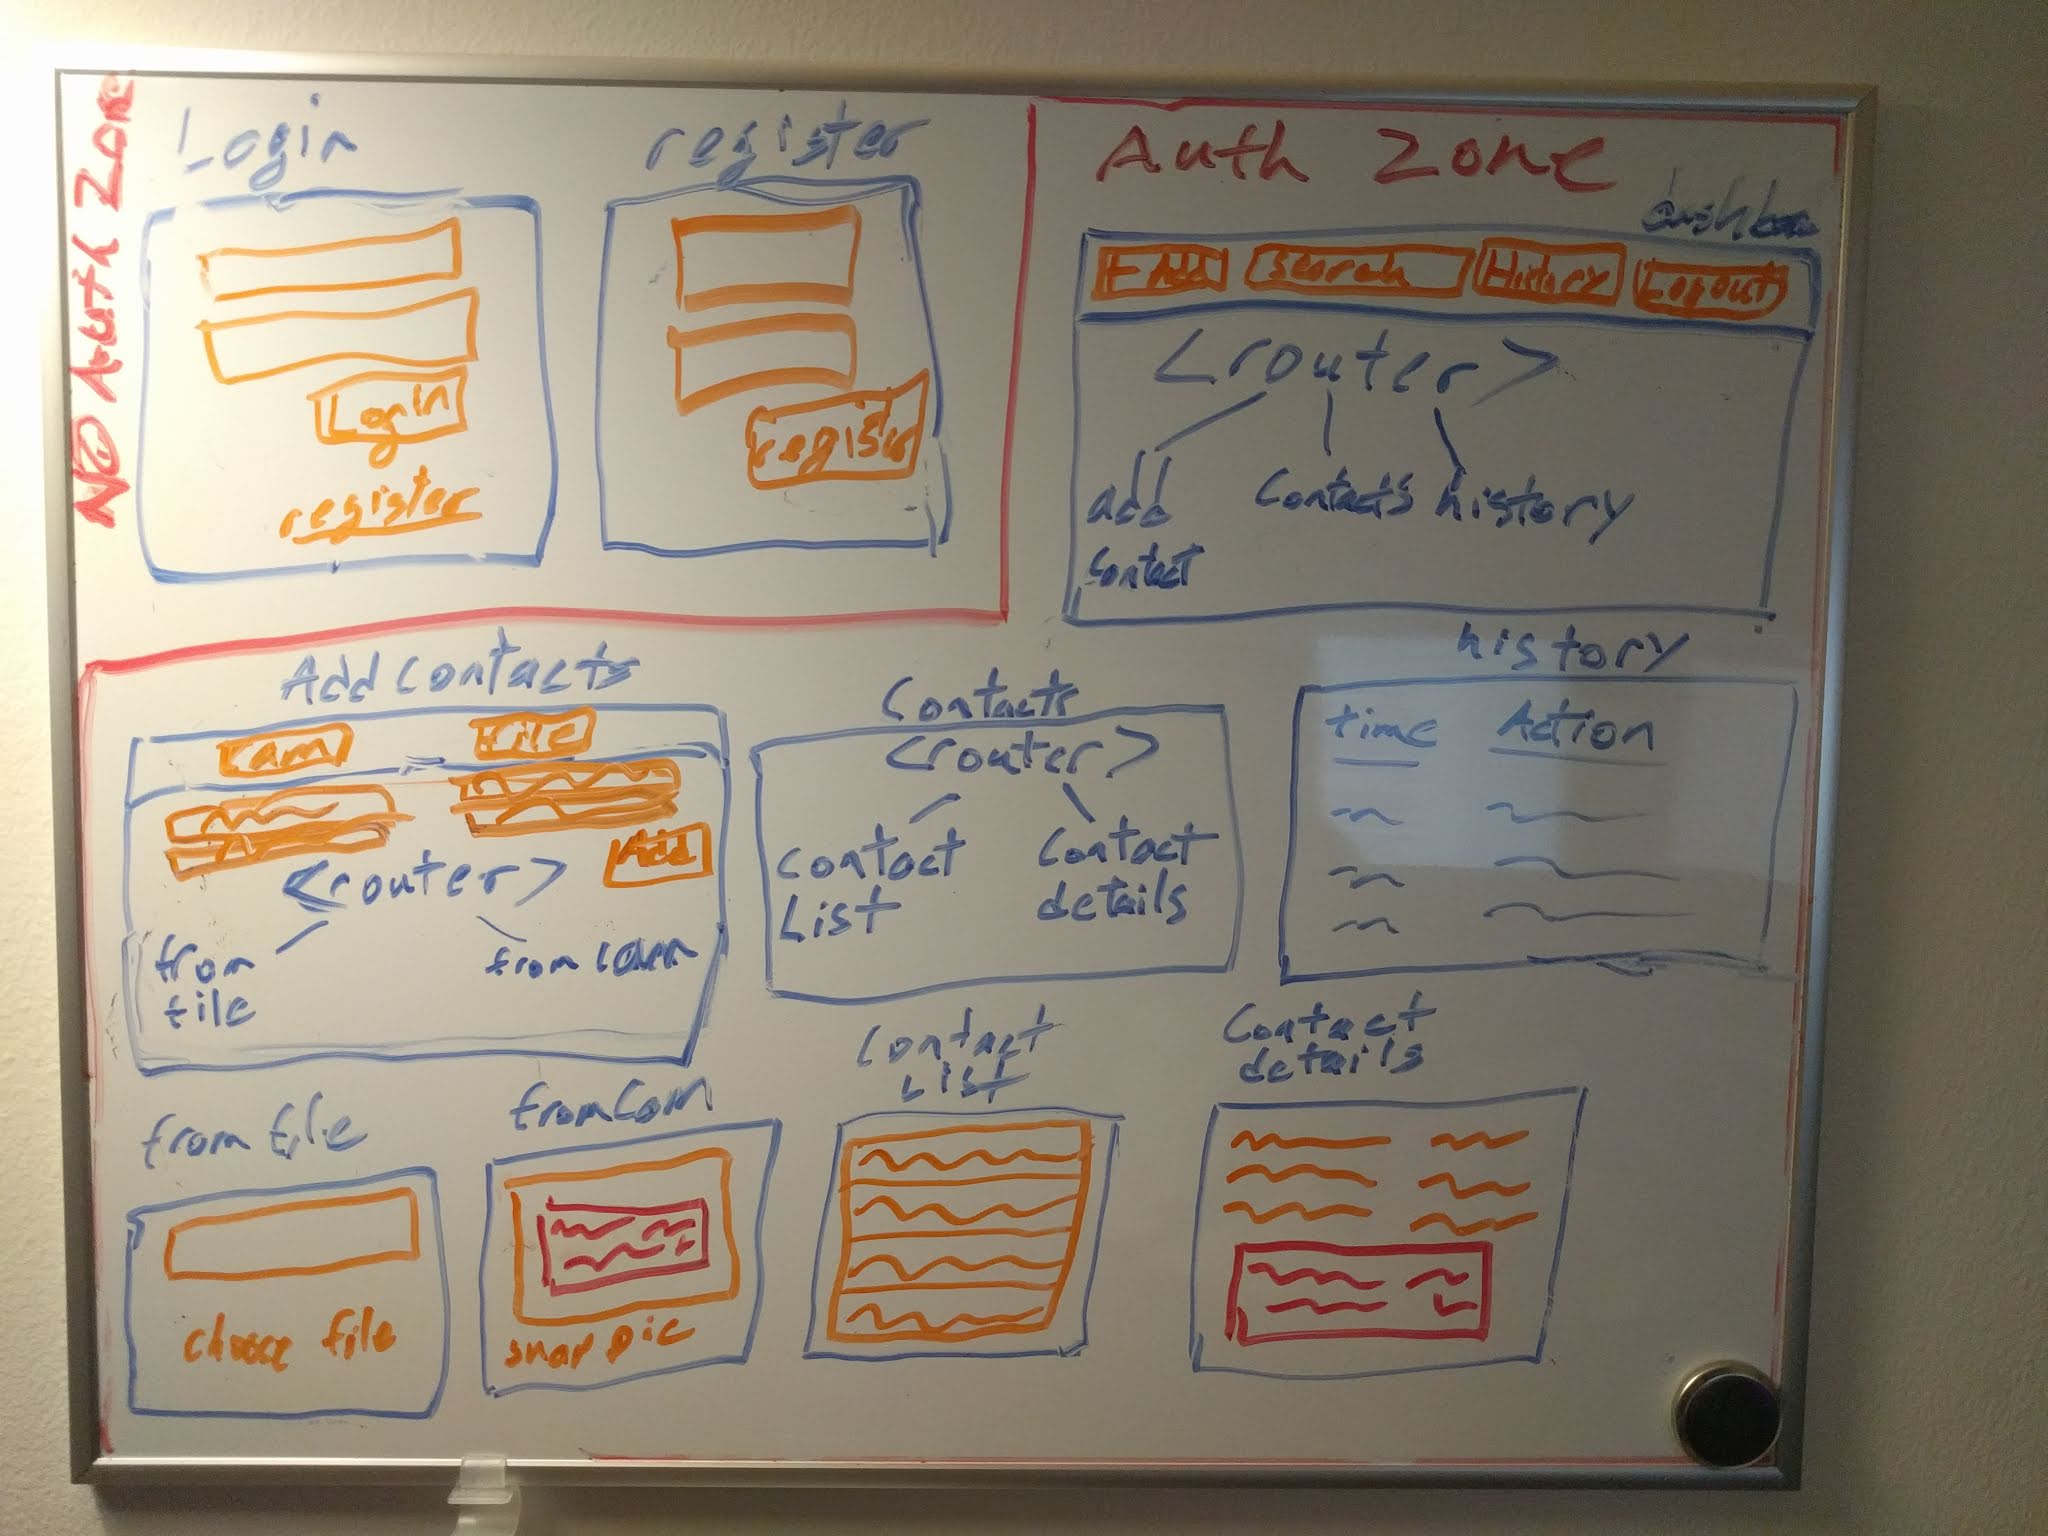 NO Auth Zone
Login
Login
register
register
register
Auth Zone
Search
History
Logout
<router>
add contact
contacts
history
Add Contacts
Cam
File
Add
<router>
from file
from cam
Contacts
<router>
Contact List
Contact details
history
time Action
from file
choose file
from Cam
snap pic
Contact List
Contact details